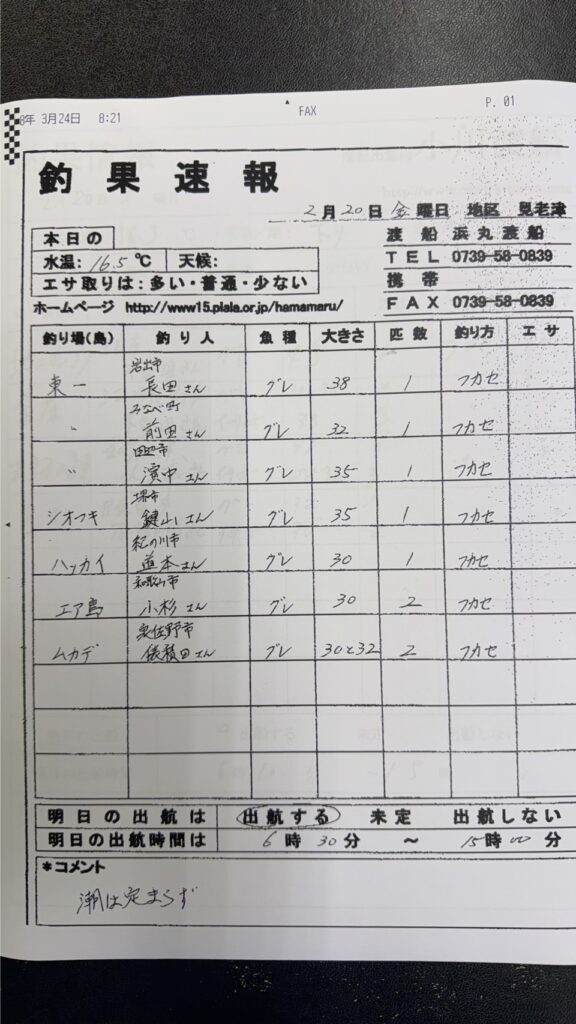 8年 3月24日 8:21 FAX P. 01
釣果速報
2月20日 金曜日 地区 見老津
本日の
水温: 16.5℃ 天候:
エサ取りは:多い・普通・少ない
渡船 浜丸渡船
TEL 0739-58-0839
携帯
FAX 0739-58-0839
ホームページ http://www15.plala.or.jp/hamamaru/
釣り場(島) 釣り人 魚種 大きさ 匹数 釣り方 エサ
岩出市
東一 長田さん グレ 38 1 フカセ
みなべ町
〃 前田さん グレ 32 1 フカセ
田辺市
〃 濱中さん グレ 35 1 フカセ
堺市
シオフキ 鍵山さん グレ 35 1 フカセ
紀の川市
ハッカイ 道本さん グレ 30 1 フカセ
和歌山市
エア島 小杉さん グレ 30 2 フカセ
泉佐野市
ムカデ 儀積田さん グレ 30と32 2 フカセ
明日の出航は 出航する 未定 出航しない
明日の出航時間は 6時30分 ～ 15時00分
*コメント
潮は定まらず